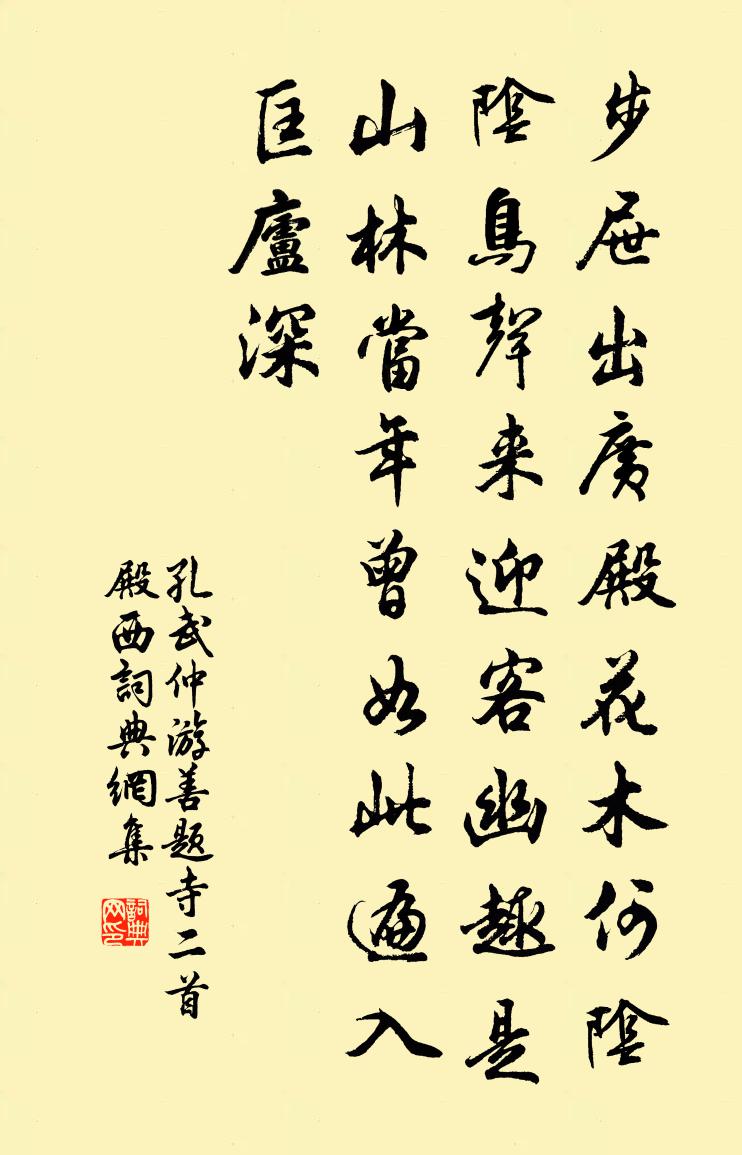 步屧出廣殿花木何陰
陰鳥聲来迎客幽趣是
山林當年曾如此遍入
匡廬深
孔武仲游善題寺二首
殿西詞典網集
詞典網印